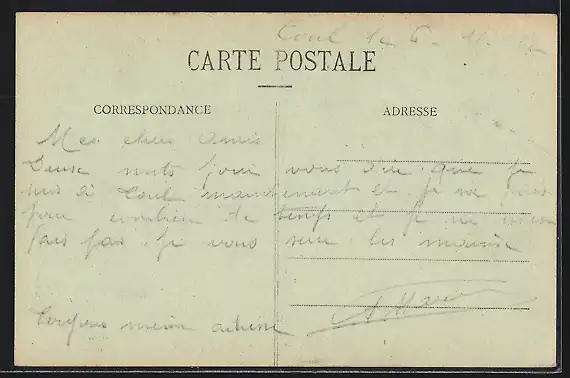 Toul le 6
CARTE POSTALE
CORRESPONDANCE
ADRESSE
Mes chers Amis
Deux mots pour vous dire que je
suis à Toul maintenant et je ne sais
pour combien de temps et je ne
pas. je vous serre les mains
Toujours même adresse